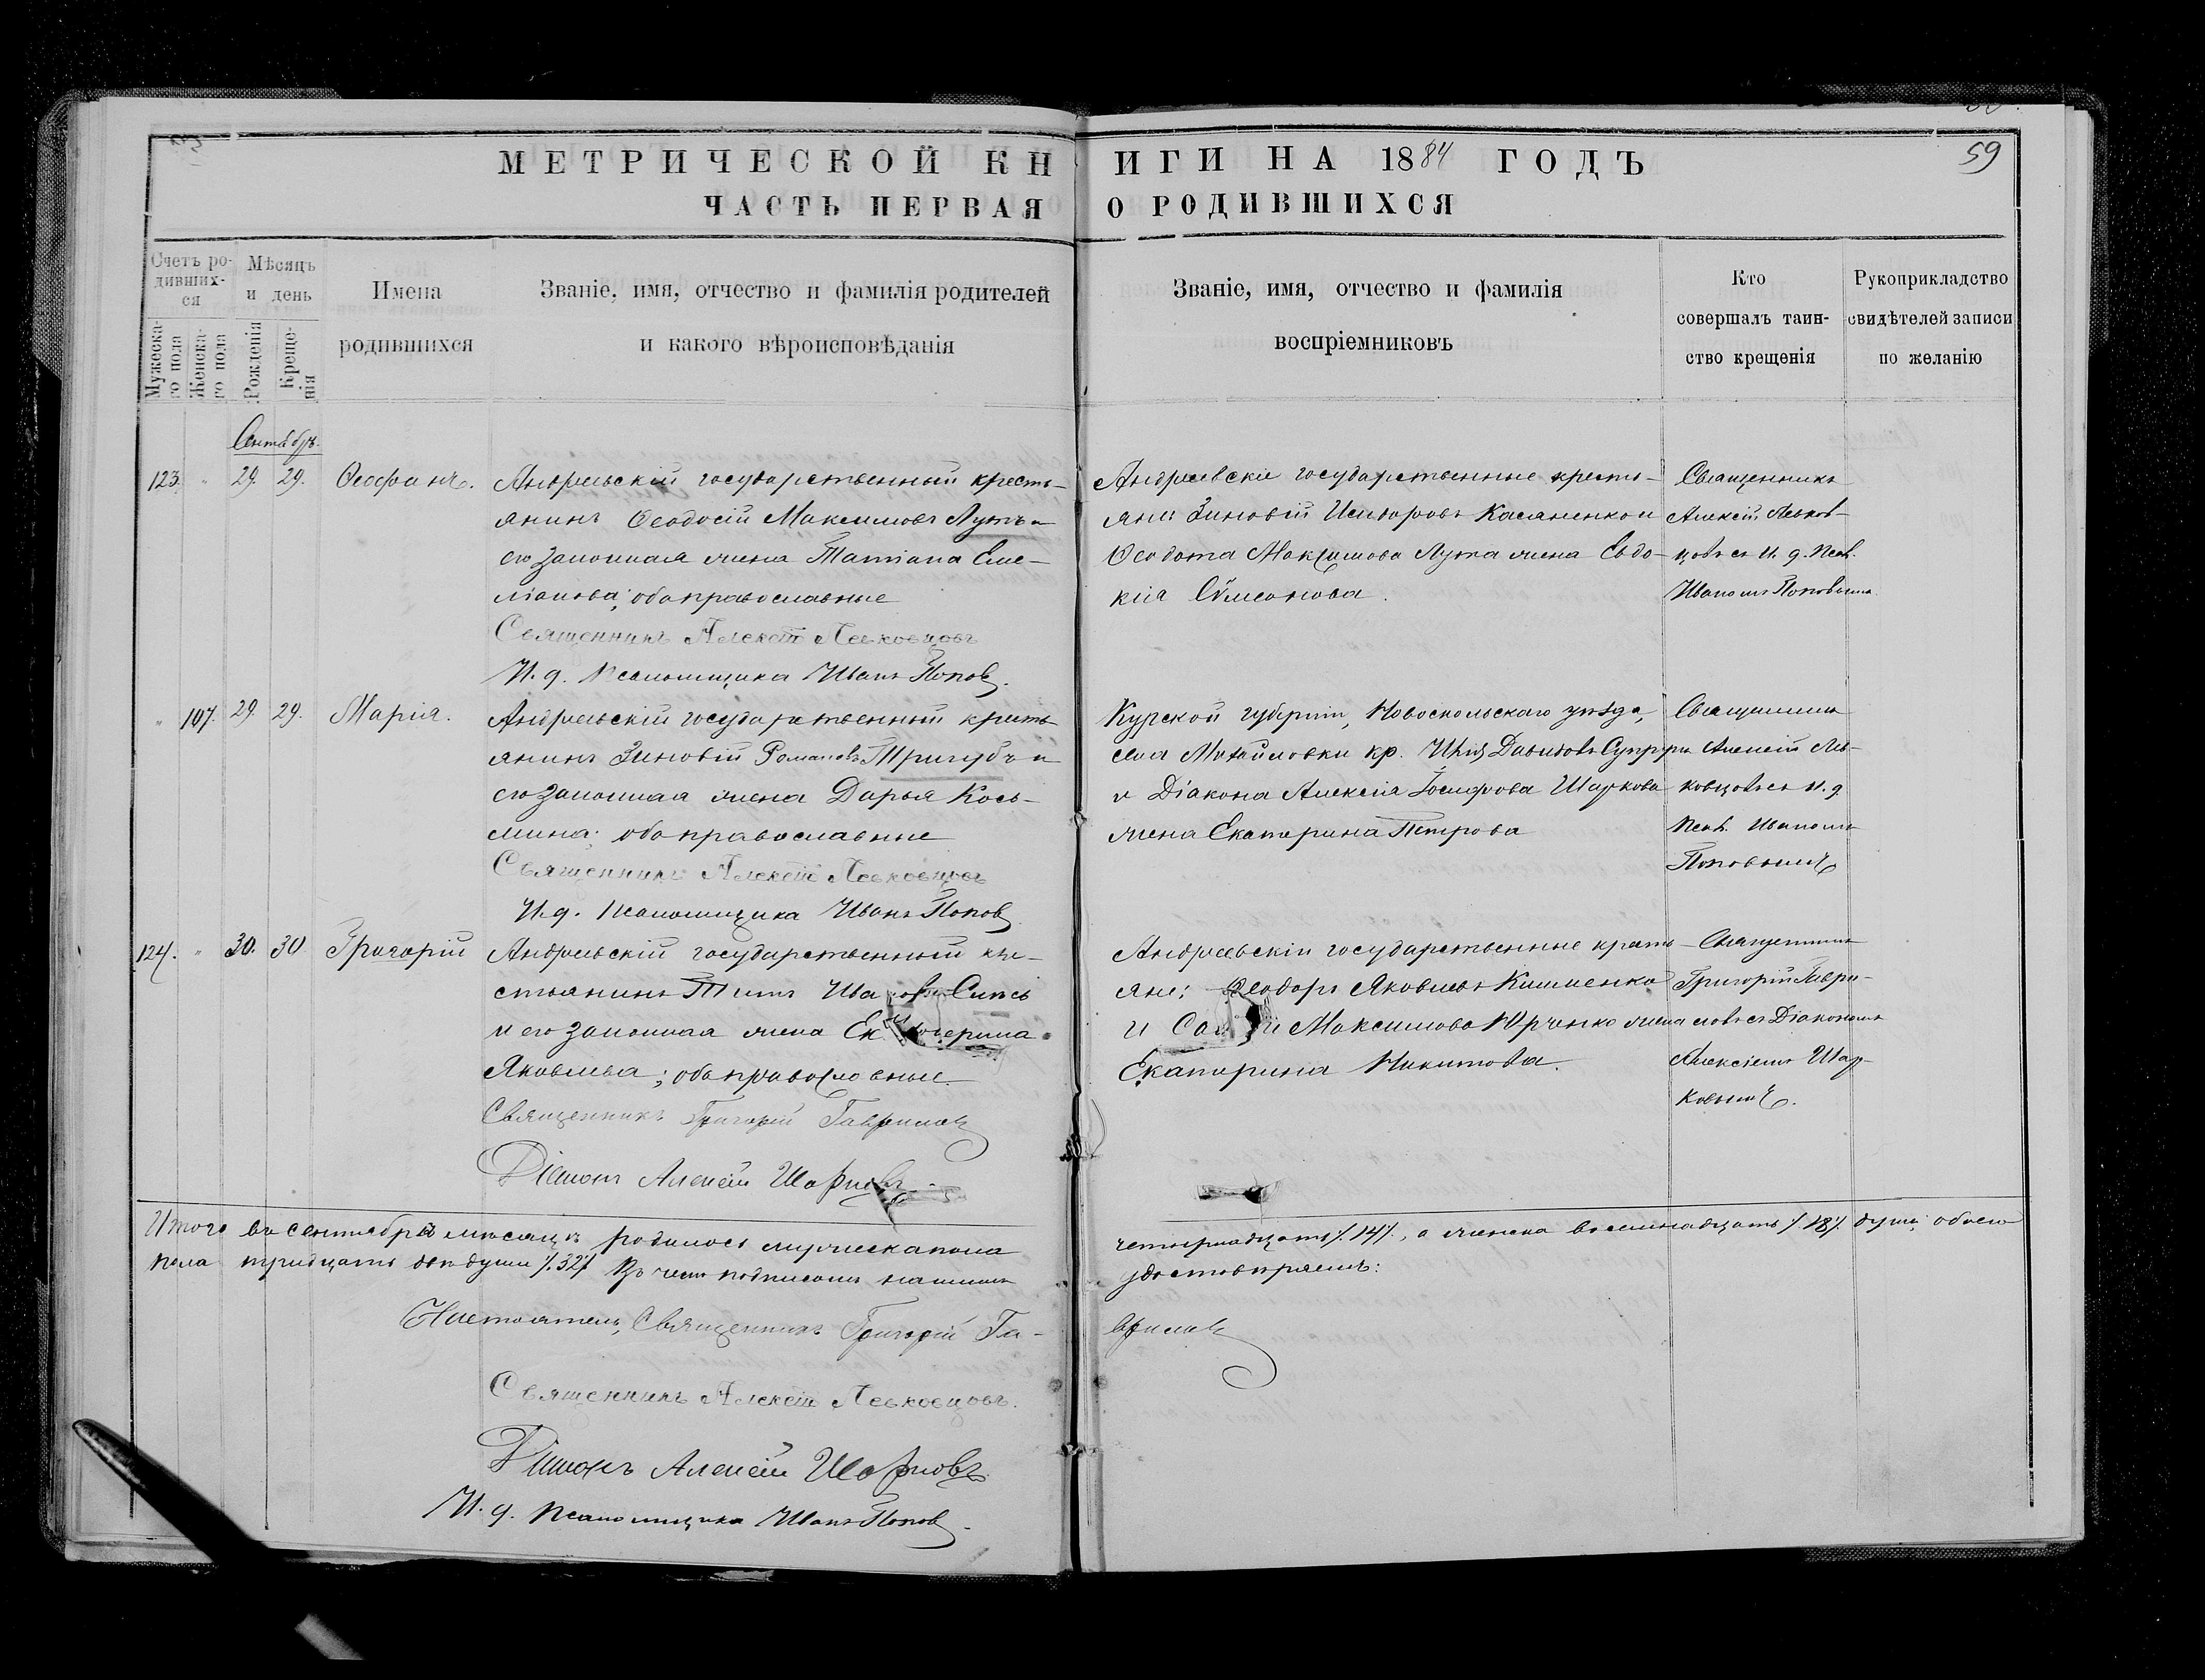 МЕТРИЧЕСКОЙ КНИГИ НА 1884 ГОДЪ
59
ЧАСТЬ ПЕРВАЯ О РОДИВШИХСЯ
Счетъ родившихся
Мужескаго пола
Женскаго пола
Мѣсяцъ и день
Рожденія
Крещенія
Имена
родившихся
Званіе, имя, отчество и фамилія родителей
и какого вѣроисповѣданія
Званіе, имя, отчество и фамилія
воспріемниковъ
Кто
совершалъ таин-
ство крещенія
Рукоприкладство
свидѣтелей записи
по желанію
Сентябрь.
123. " 29. 29. Ѳеофанъ.
Андреевскій государственный кресть-
янинъ Ѳеодосій Максимовъ Лута и
его законная жена Татіана Еме-
ліанова; оба православные
Священникъ Алексѣй Левковцовъ
И. д. Псаломщика Иванъ Поповъ.
Андреевскіе государственные кресть-
яне: Зиновій Исидоровъ Касяненко и
Ѳеодота Максимова Лута жена Евдо-
кія Сѵмеонова.
Священникъ
Алексій Левков-
цовъ съ И. д. Псал.
Иваномъ Поповымъ
" 107. 29. 29. Марія.
Андреевскій государственный кресть-
янинъ Зиновій Романовъ Тригубъ и
его законная жена Дарья Кось-
мина; оба православные
Священникъ Алексѣй Левковцовъ
И. д. Псаломщика Иванъ Поповъ
Курской губерніи, Новоскольскаго уѣзда,
села Михайловки кр. Давидовъ
и Діакона Алексія Іосифова Шаркова
жена Екатерина Петрова
Священникъ
Алексій Лев-
ковцовъ съ И. д.
Псал. Иваномъ
Поповымъ
124. " 30. 30. Григорій
Андреевскій государственный кре-
стьянинъ Титъ
и его законная жена Екатерина
Яковлева; оба православные.
Священникъ Григорій Гавриловъ
Діаконъ Алексѣй Шарковъ.
Андреевскіи государственные кресть-
яне: Ѳеодоръ Яковлевъ
и Максимова Юрченко жена
Екатерина Никитова.
Священникъ
Григорій Гаври-
ловъ съ Діакономъ
Алексіемъ Шар-
ковымъ.
Итого въ сентябрѣ мѣсяцѣ родилось мужеска пола четырнадцать /.14/., а женска восемнадцать /.18/. душъ, обоего
пола тридцать двѣ души /.32/. Въ чемъ подписомъ нашимъ удостовѣряемъ:
Настоятель, Священникъ Григорій Гавриловъ
Священникъ Алексѣй Левковцовъ.
Діаконъ Алексѣй Шарковъ.
И. д. Псаломщика Иванъ Поповъ.